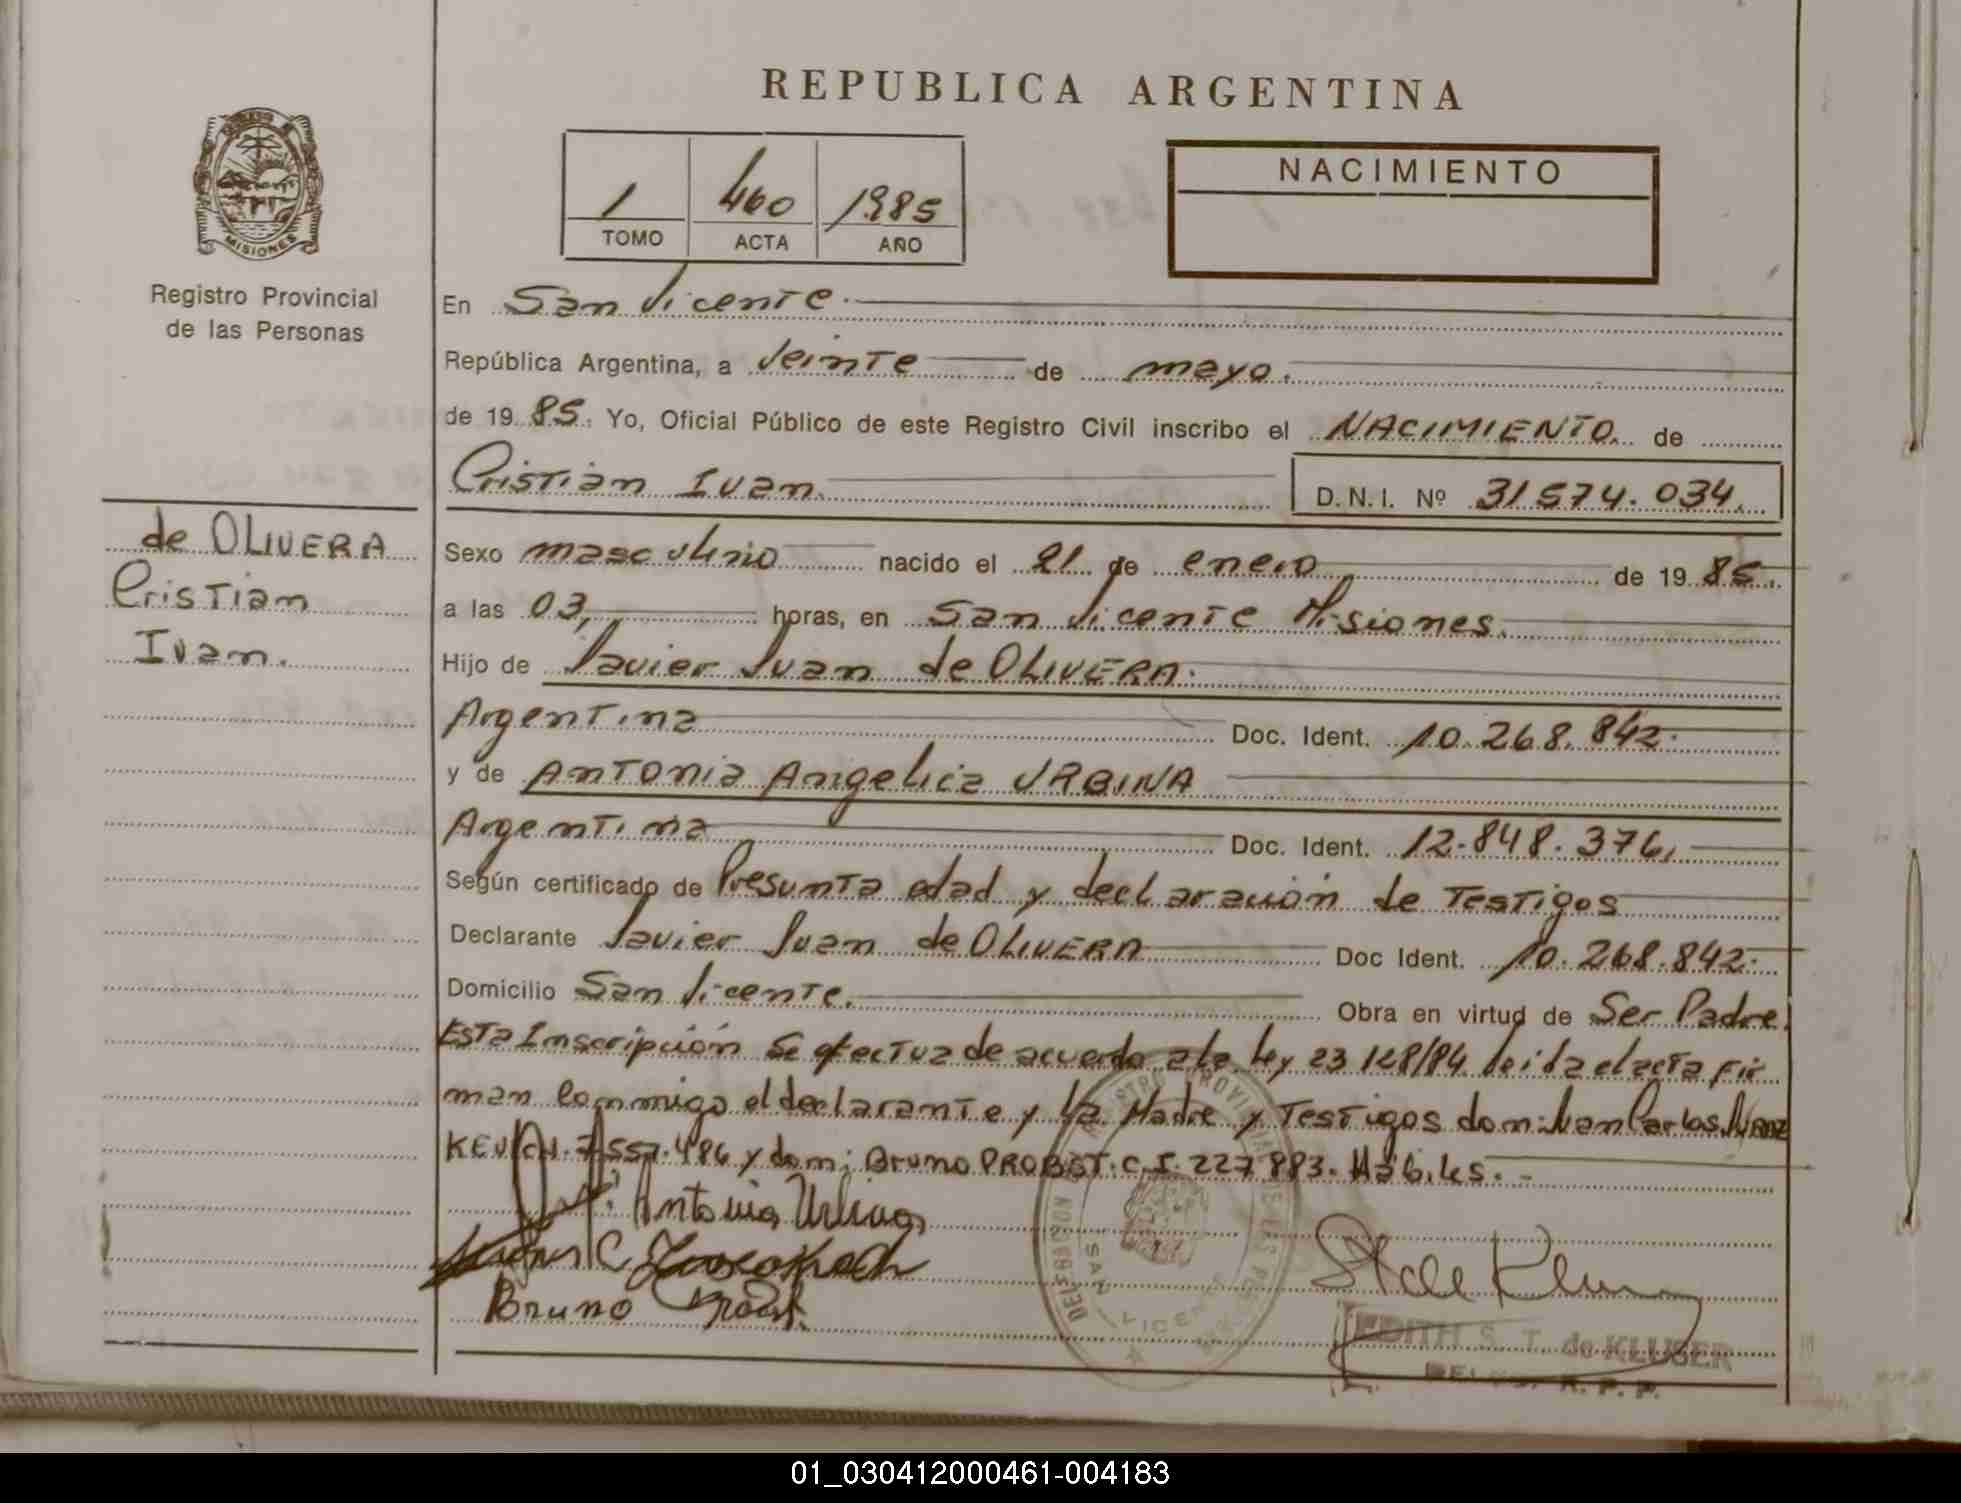 REPUBLICA ARGENTINA
MISIONES
Registro Provincial
de las Personas
1 460 1985
TOMO ACTA AÑO
NACIMIENTO
En San Vicente.
República Argentina, a Veinte de mayo.
de 19 85. Yo, Oficial Público de este Registro Civil inscribo el NACIMIENTO de
Cristian Ivan. D.N.I. Nº 31574.034.
de OLIVERA
Cristian
Ivan.
Sexo masculino nacido el 21 de enero de 19 85.
a las 03, horas, en San Vicente Misiones.
Hijo de Javier Juan de OLIVERA.
Argentina Doc. Ident. 10.268.842.
y de Antonia Angelica URBINA
Argentina Doc. Ident. 12.848.376,
Según certificado de Presunta edad y declaración de Testigos
Declarante Javier Juan de OLIVERA Doc Ident. 10.268.842.
Domicilio San Vicente. Obra en virtud de Ser Padre.
Esta Inscripción se efectua de acuerdo a la Ley 23 128/84 leida el acta fir
man conmigo el declarante y la Madre y Testigos don: Juan Carlos
KEVICH. 7.557.486 y don: Bruno PROBST. C.I. 227.883. Hábiles.-
Antonia Urbina
Bruno Probst
SAN VICENTE
EDITH S. T. de KLUSER
R. P. P.
01_030412000461-004183